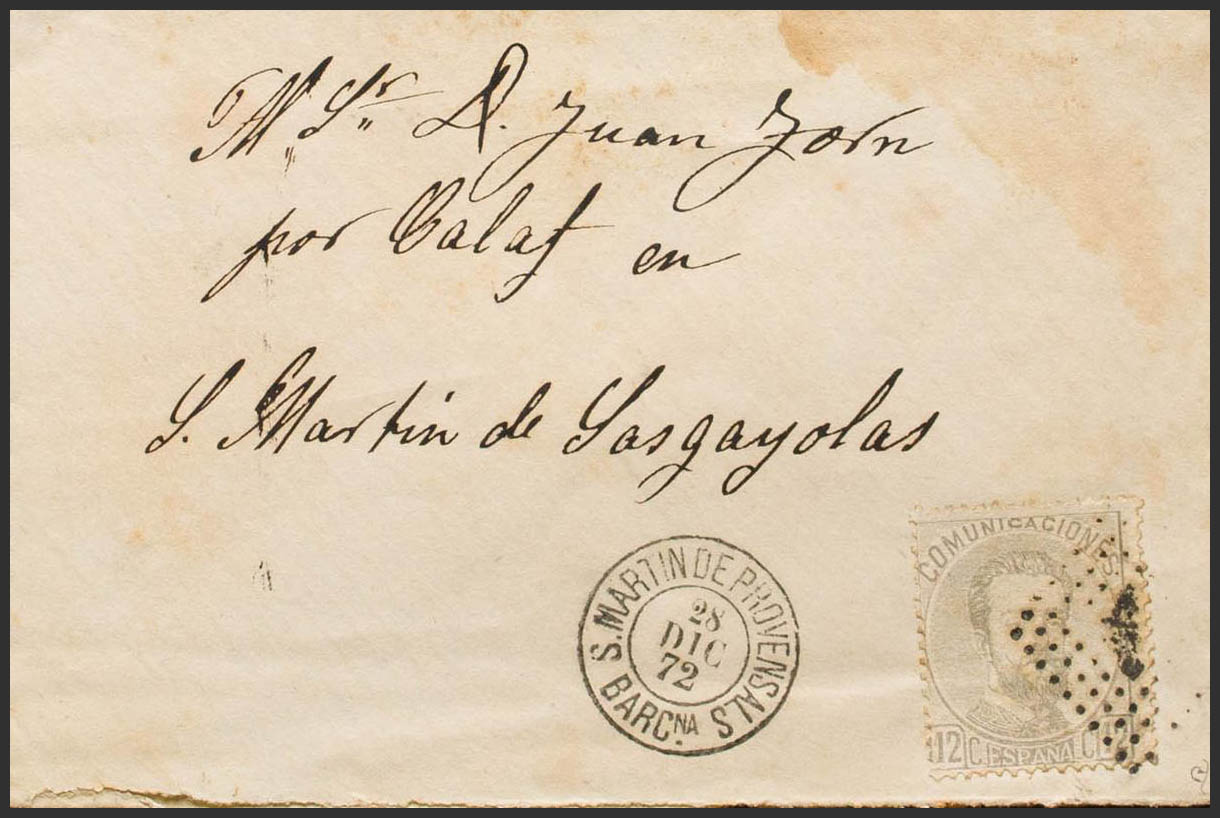 M. Sr. D. Juan Jorn
por Calaf en
S. Martin de Sasgayolas
S. MARTIN DE PROVENSALS
28
DIC
72
BARCNA.
COMUNICACIONES
12 C. ESPAÑA C. 12